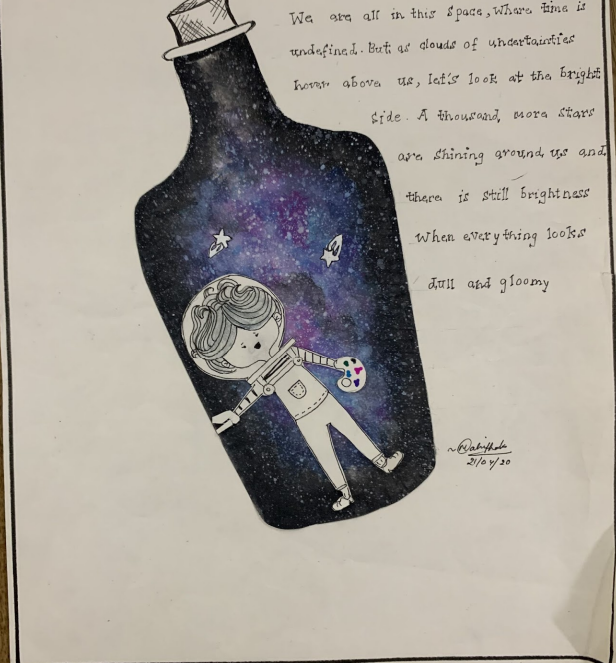 We are all in this space, where time is
undefined. But as clouds of uncertainties
hover above us, let's look at the bright
side. A thousand, more stars
are shining around us and,
there is still brightness
When everything looks
dull and gloomy
21/04/20